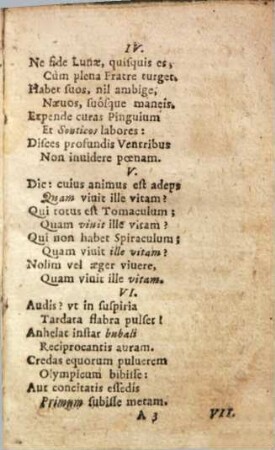 IV.
Ne fide Lunæ, quisquis es,
Cùm plena Fratre turget.
Habet suos, nil ambige,
Næuos, suósque maneis.
Expende curas Pinguium
Et Sonticos labores:
Disces profundis Ventribus
Non inuidere pœnam.
V.
Dic: cuius animus est adeps
Quam viuit ille vitam?
Qui totus est Tomaculum;
Quam viuit ille vitam?
Qui non habet Spiraculum;
Quam viuit ille vitam?
Nolim vel æger viuere,
Quam viuit ille vitam.
VI.
Audis? vt in suspiria
Tardata flabra pulset!
Anhelat instar bubali
Reciprocantis auram.
Credas equorum puluerem
Olympicum bibisse:
Aut concitatis essedis
Primum subisse metam.
A 3 VII.